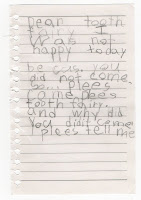 Dear tooth
fairy I
was not
happy today
be cus you
did not come.
so... plees
come plees
tooth fairy.
and why did
you didn't come
plees tell me